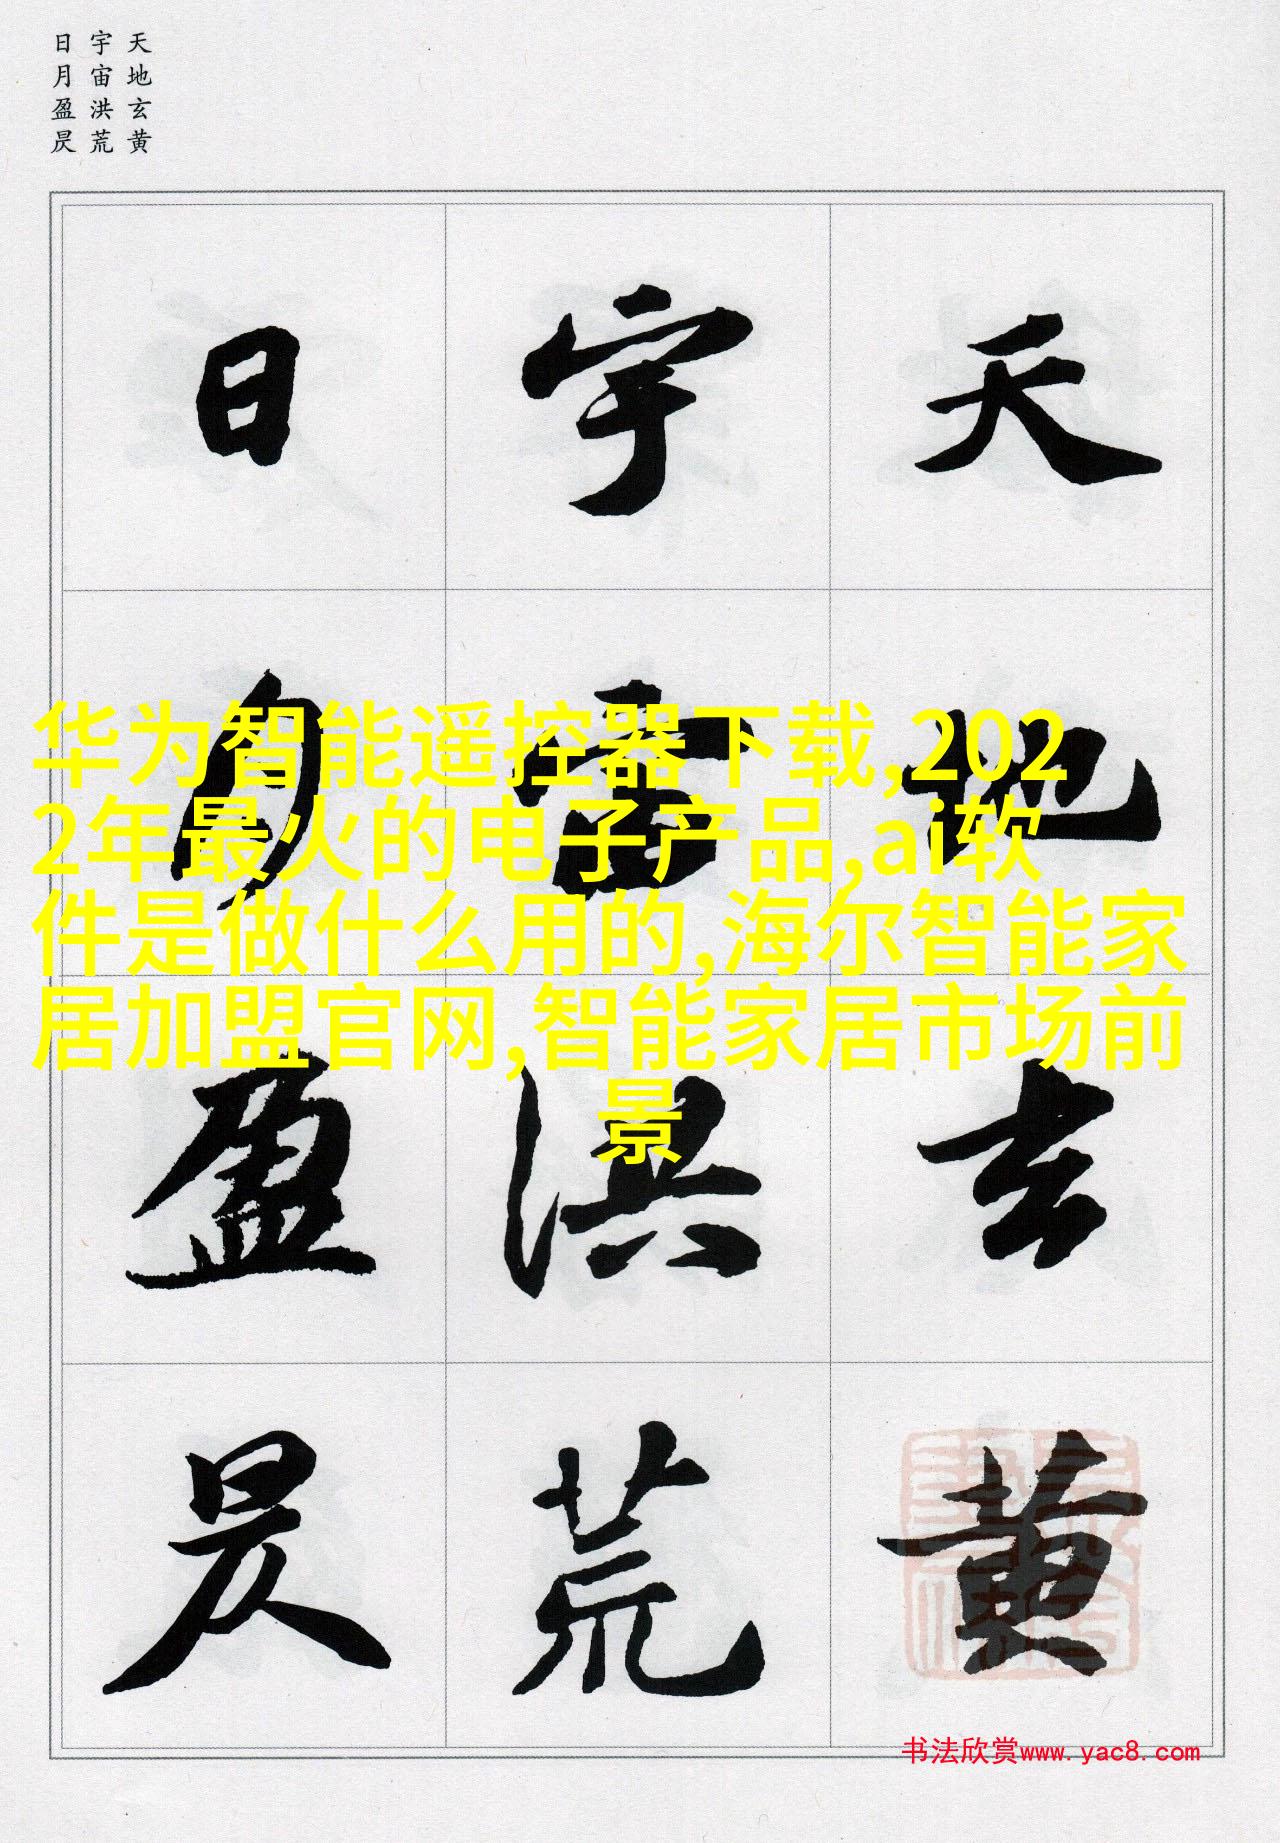 天地玄黄
宇宙洪荒
日月盈昃
天地玄黄
宇宙洪荒
日月盈昃
华为智能遥控器下载,202
2年最火的电子产品,ai软
件是做什么用的,海尔智能家
居加盟官网,智能家居市场前
景
书法欣赏www.yac8.com